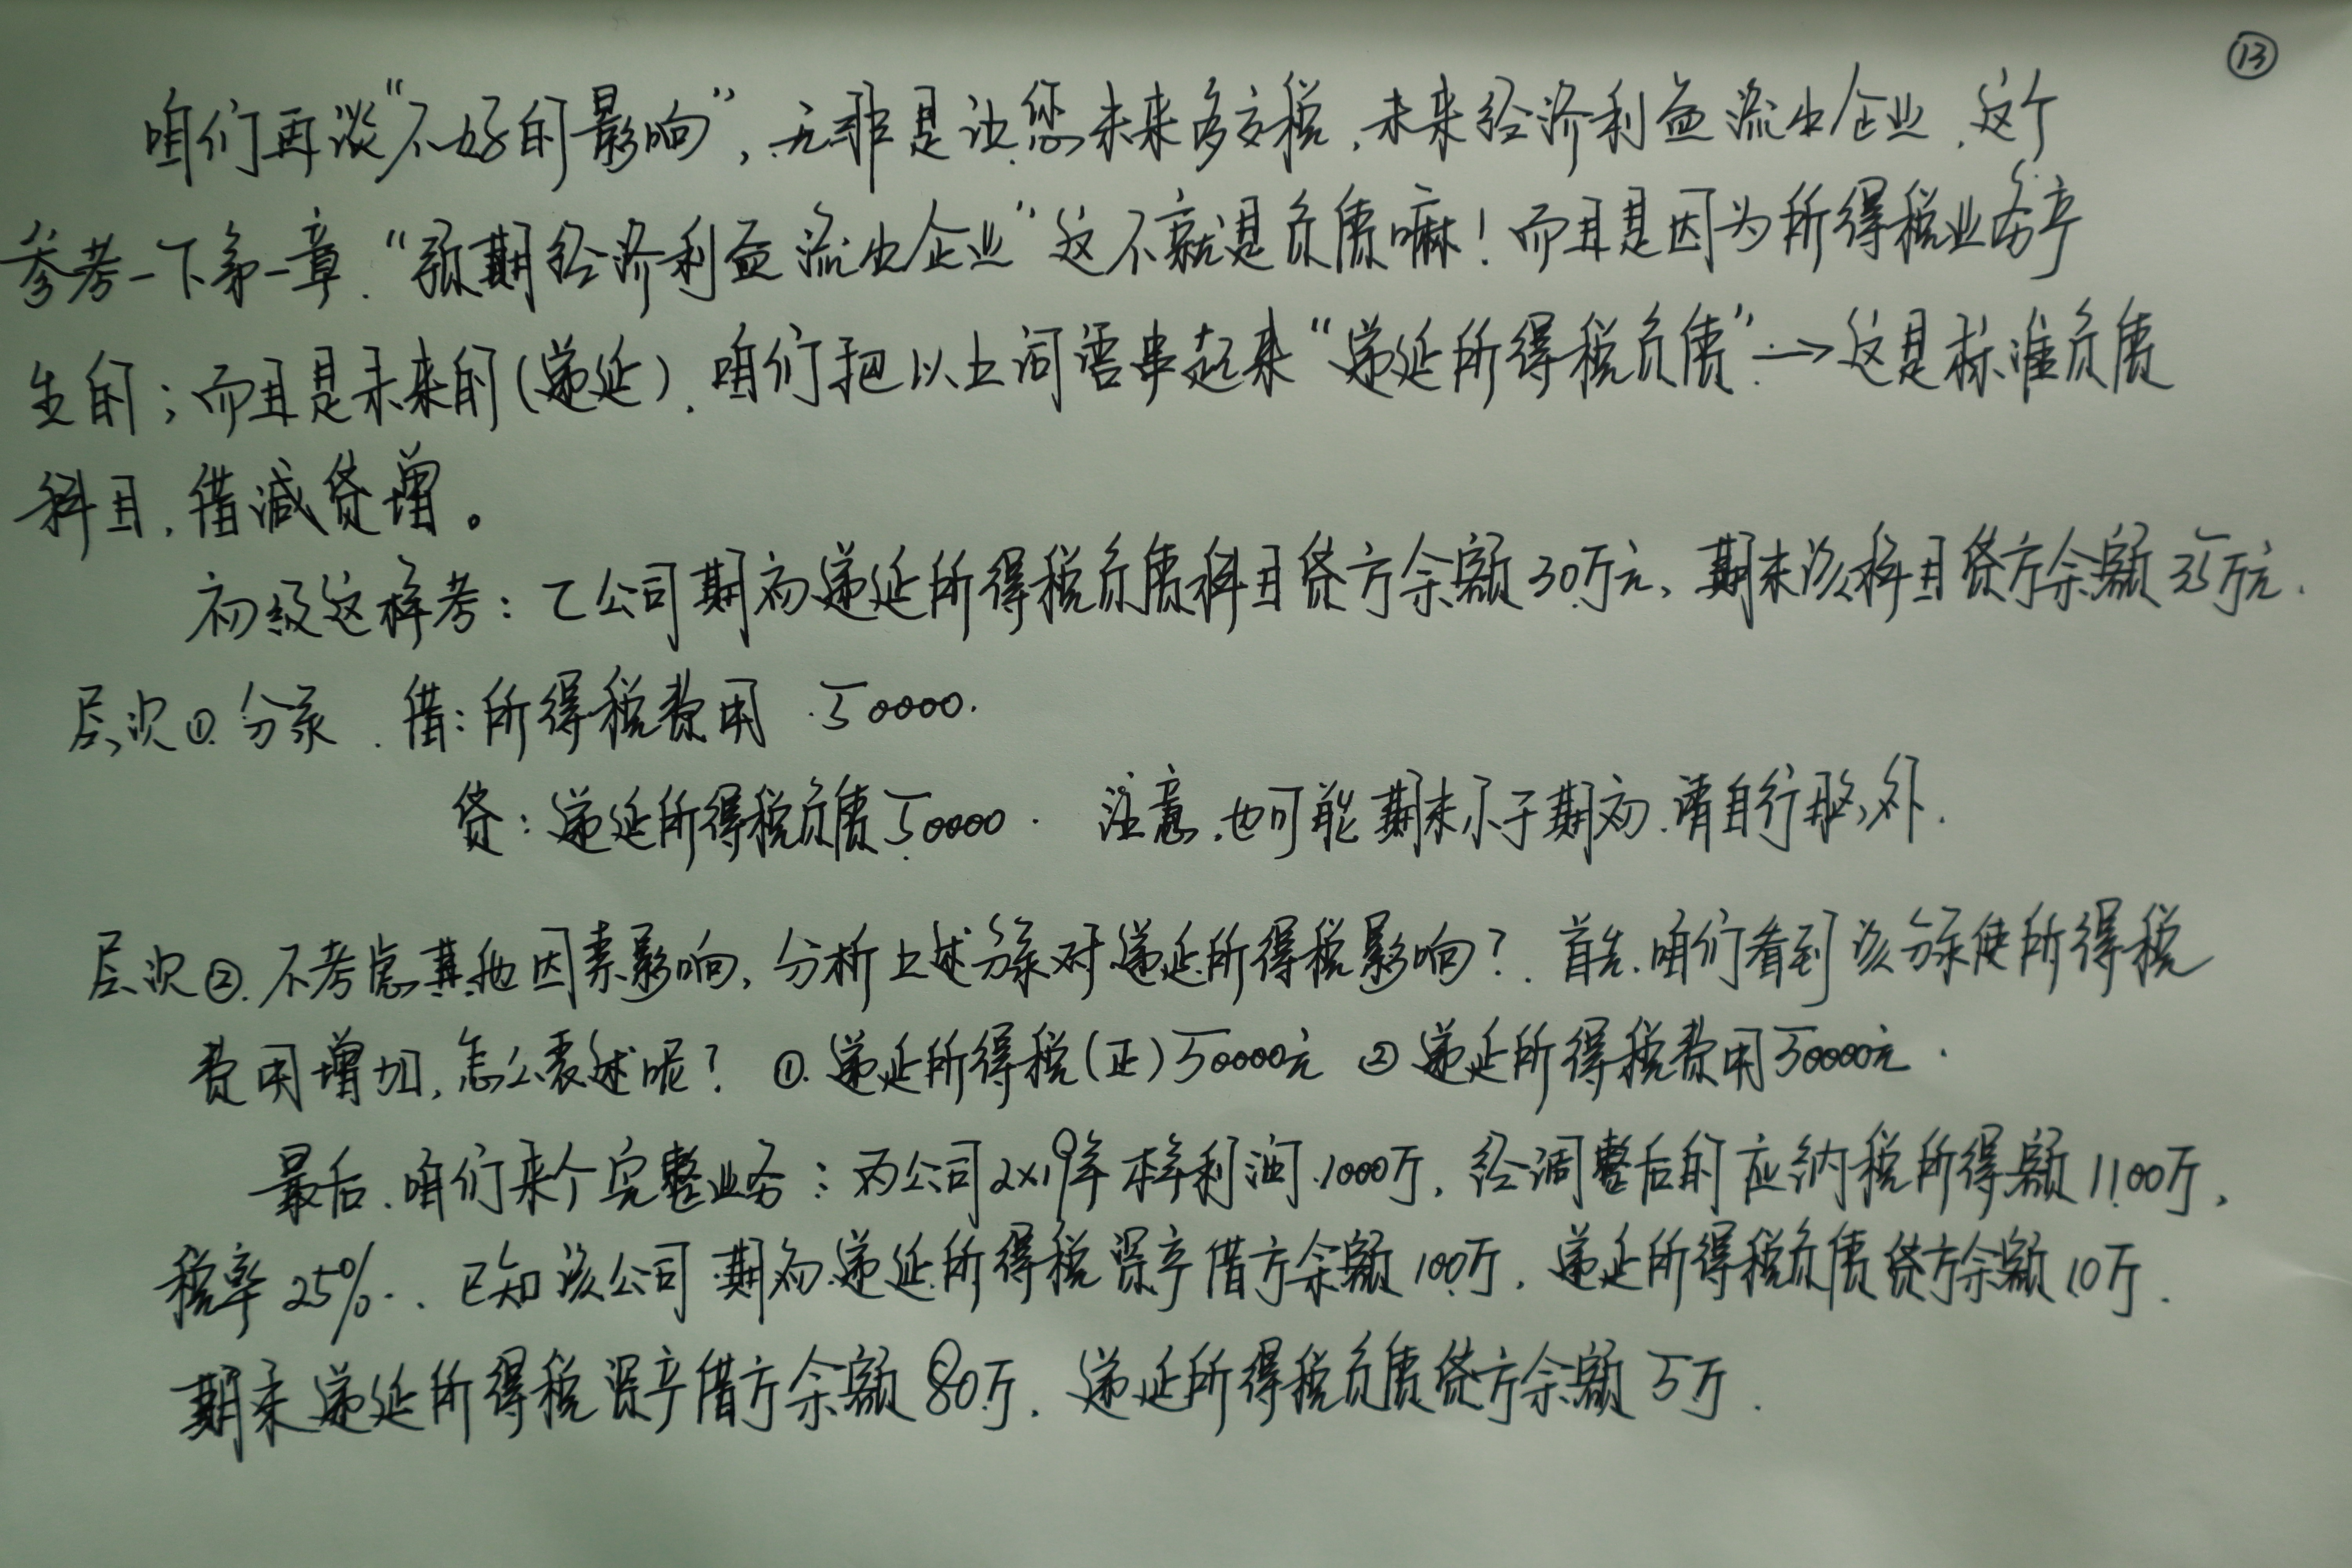 ⑬
咱们再谈“不好的影响”，无非是让您未来多交税，未来经济利益流出企业，这个
参考一下第一章，“预期经济利益流出企业”这不就是负债嘛！而且是因为所得税业务产
生的；而且是未来的(递延)，咱们把以上词语串起来“递延所得税负债”→这是标准负债
科目，借减贷增。
初级这样考：乙公司期初递延所得税负债科目贷方余额30万元，期末该科目贷方余额35万元．
层次①.分录．借：所得税费用 50000．
贷：递延所得税负债50000． 注意，也可能期末小于期初，请自行脑补．
层次②.不考虑其他因素影响，分析上述分录对递延所得税影响？．首先，咱们看到该分录使所得税
费用增加，怎么表述呢？ ①.递延所得税(正)50000元 ②递延所得税费用50000元．
最后，咱们来个完整业务：丙公司2×19年本年利润1000万，经调整后的应纳税所得额1100万，
税率25%．．已知该公司期初递延所得税资产借方余额100万，递延所得税负债贷方余额10万．
期末递延所得税资产借方余额80万，递延所得税负债贷方余额5万．